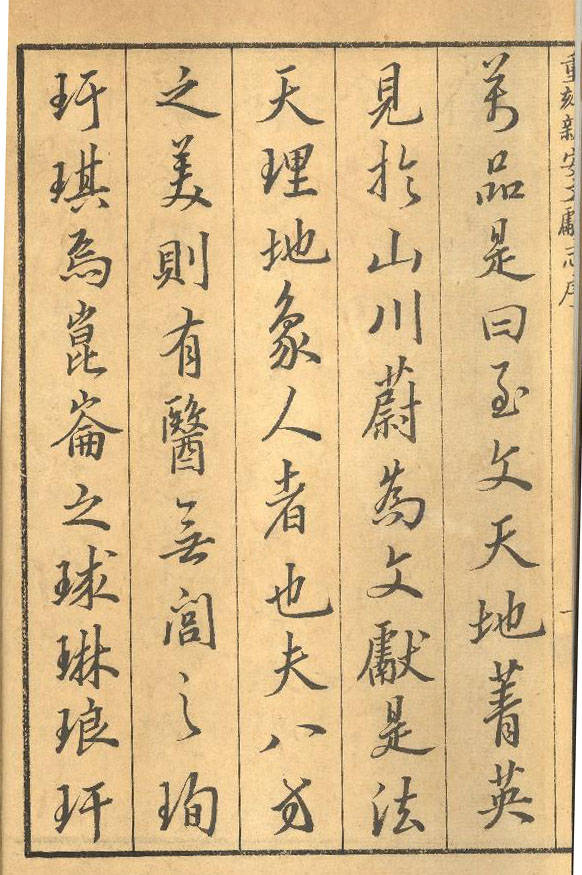 重刻新安文獻志序 一
萬品是曰至文天地菁英
見於山川蔚為文獻是法
天理地象人者也夫八方
之美則有醫無閭之珣
玗琪焉崑崙之球琳琅玕